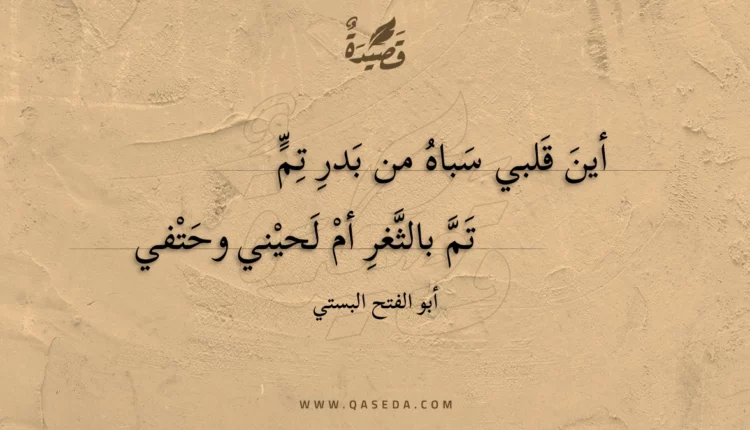 قَصِيْدَةٌ
أينَ قَلبي سَباهُ من بَدرِ تِمٍّ
تَمَّ بالثَّغرِ أمْ لَحيْني وحَتْفي
أبو الفتح البستي
WWW.QASEDA.COM